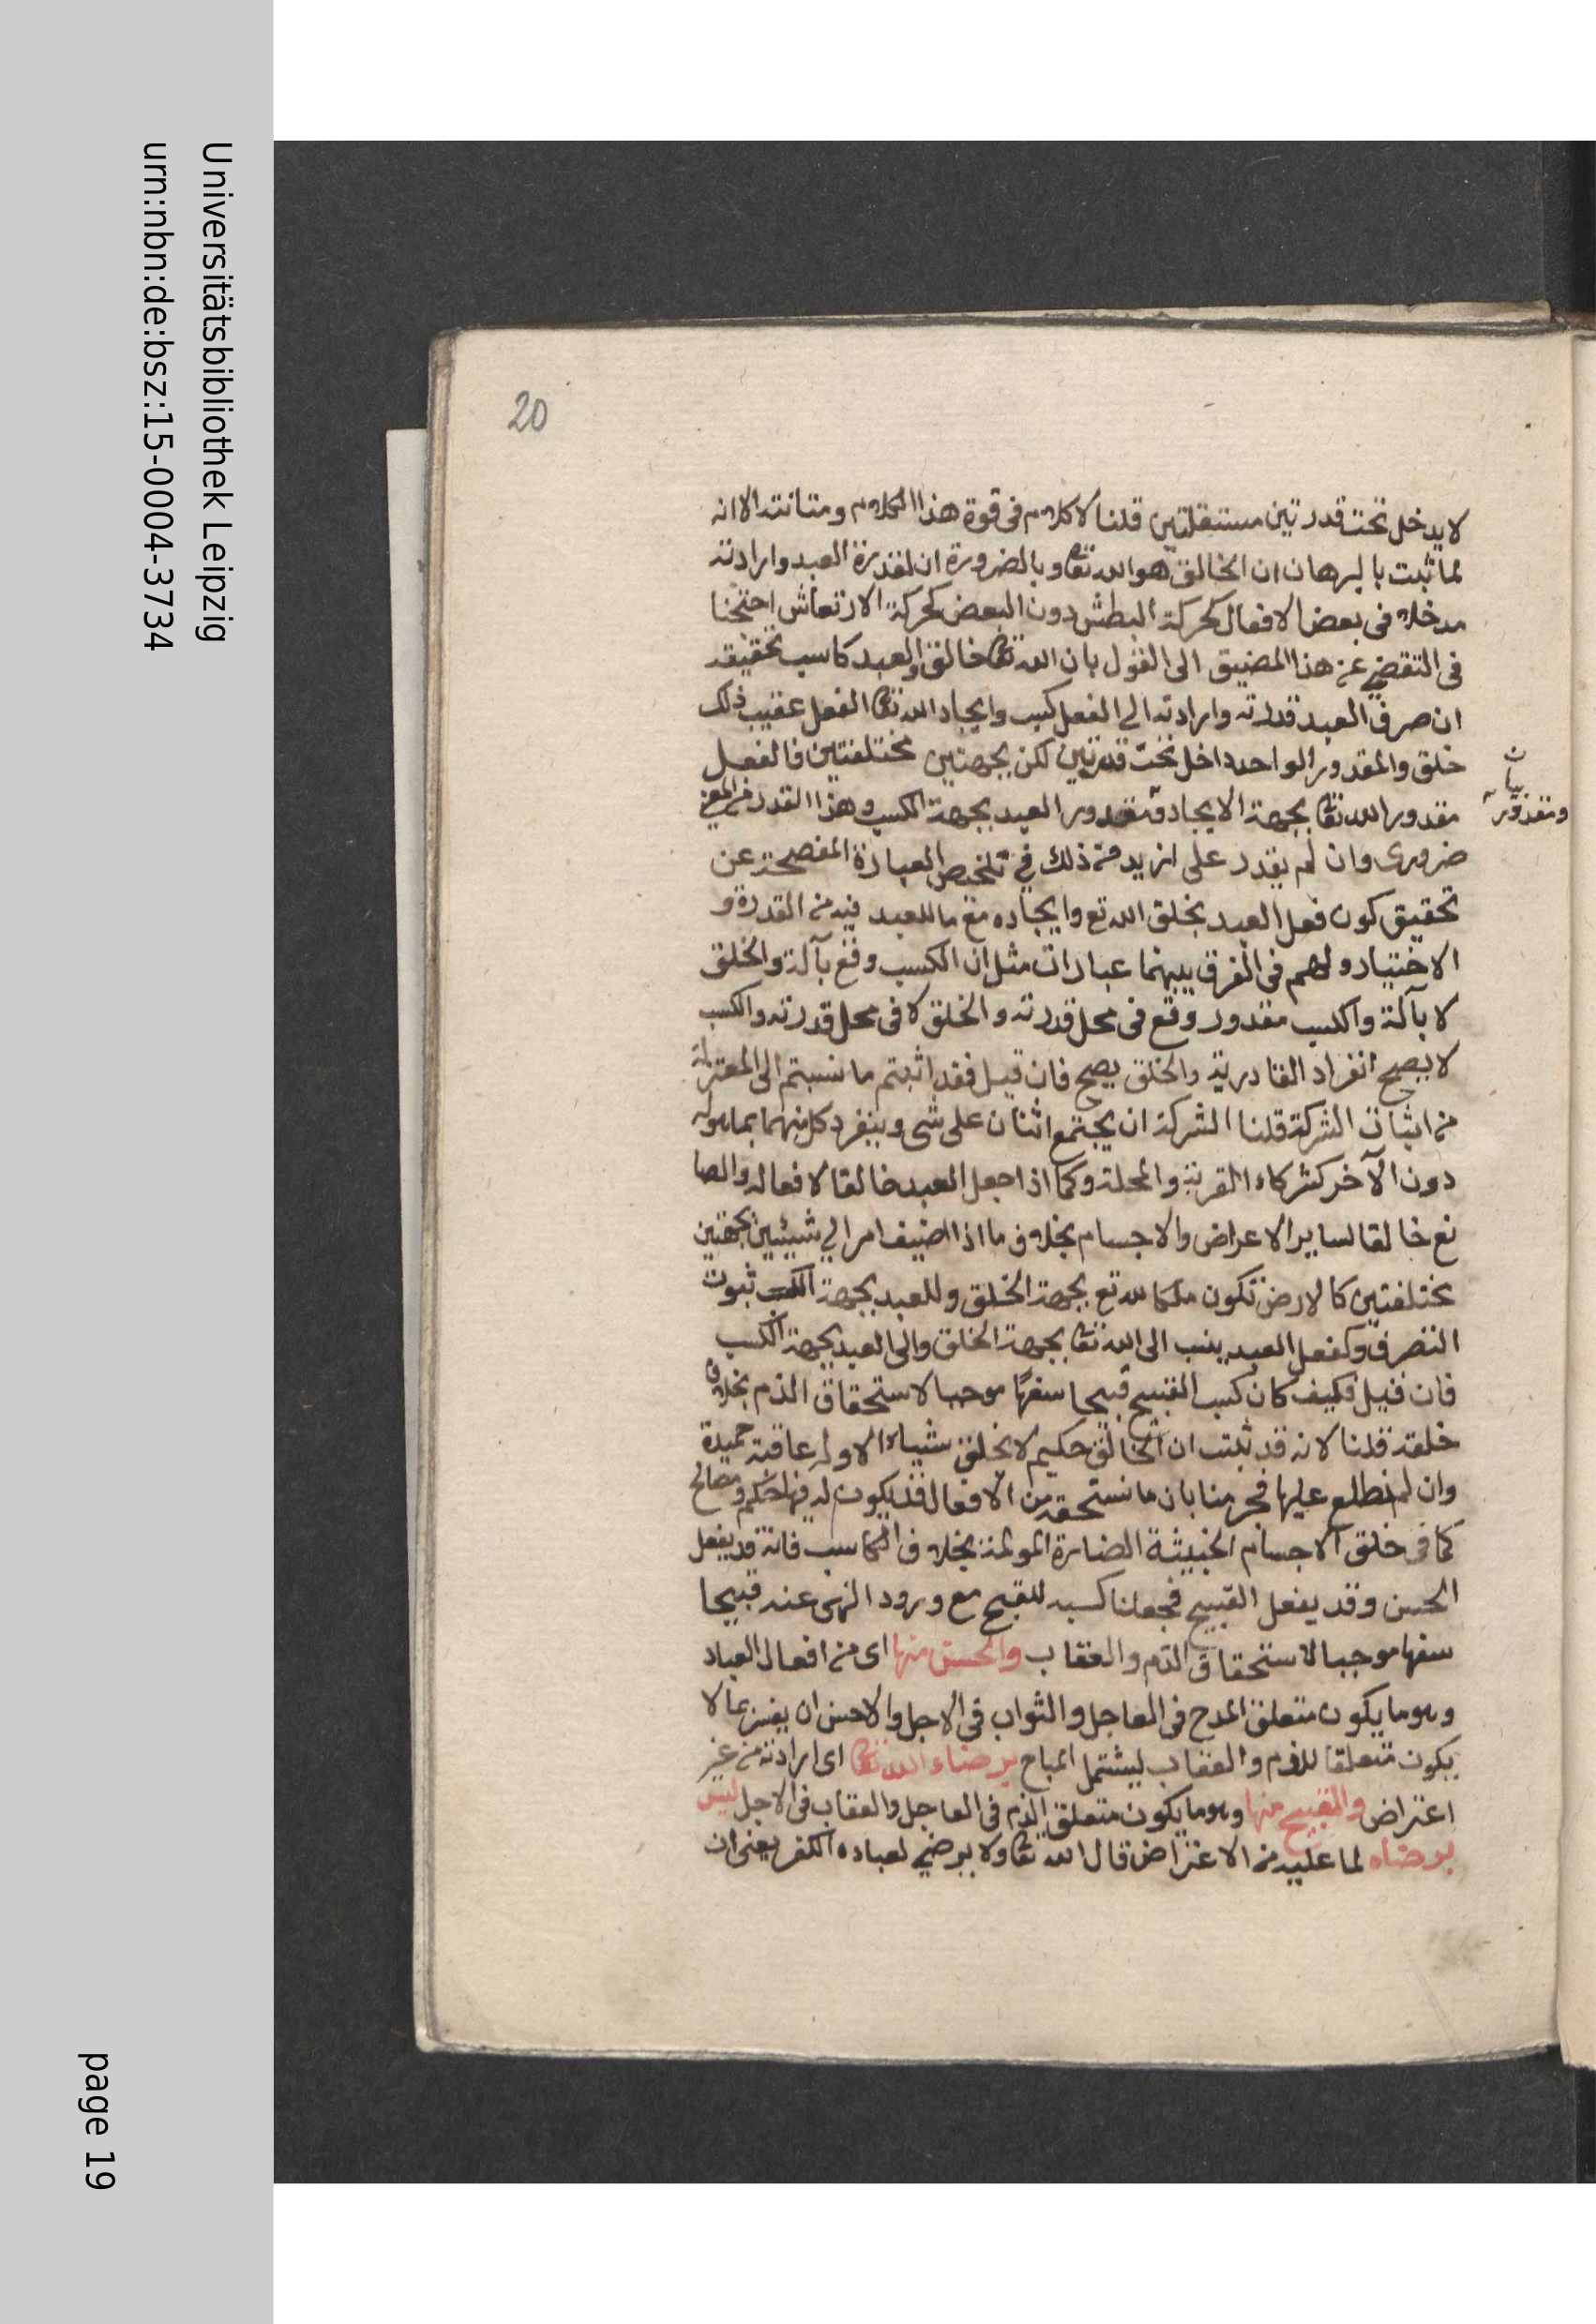 20
لا يدخل تحت قدرتين مستقلتين قلنا لا كلام فى قوة هذا الكلام ومتانته الا انه
لما ثبت بالبرهان ان الخالق هو الله تعا وبالضرورة ان لقدرة العبد وارادته
مدخلا فى بعض الافعال كحركة البطش دون البعض كحركة الارتعاش احتجنا
فى التفصى عن هذا المضيق الى القول بان الله تعا خالق والعبد كاسب تحقيقه
ان صرف العبد قدرته وارادته الى الفعل كسب وايجاد الله تعا الفعل عقيب ذلك
خلق والمقدور الواحد داخل تحت قدرتين لكن بجهتين مختلفتين فالفعل
مقدور الله تعا بجهة الايجاد ومقدور العبد بجهة الكسب وهذا القدر من المعنى
ومقدور
بيان
ضرورى وان لم يقدر على ازيد من ذلك فى تلخيص العبارة المفصحة عن
تحقيق كون فعل العبد بخلق الله تع وايجاده مع ما للعبد فيه من القدرة و
الاختيار ولهم فى الفرق بينهما عبارات مثل ان الكسب وقع بآلة والخلق
لا بآلة والكسب مقدور وقع فى محل قدرته والخلق لا فى محل قدرته والكسب
لا يصح انفراد القادر به والخلق يصح فان قيل فقد اثبتم ما نسبتم الى المعتزلة
من اثبات الشركة قلنا الشركة ان يجتمع اثنان على شى وينفرد كل منهما بما هو له
دون الآخر كشركاء القرية والمحلة وكما اذا جعل العبد خالقا لافعاله والصا
نع خالقا لساير الاعراض والاجسام بخلاف ما اذا اضيف امر الى شيئين بجهتين
مختلفتين كالارض تكون ملكا لله تع بجهة الخلق وللعبد بجهة ثبوت
التصرف وكفعل العبد ينسب الى الله تعا بجهة الخلق والى العبد بجهة الكسب
فان قيل فكيف كان كسب القبيح قبيحا سفها موجبا لاستحقاق الذم بخلاف
خلقه قلنا لانه قد ثبت ان الخالق حكيم لا يخلق شياء الا وله عاقبة حميدة
وان لم نطلع عليها فجزمنا بان ما نستحقه من الافعال قد يكون له فيها حكم ومصالح
كما فى خلق الاجسام الخبيثة الضارة المولمة بخلاف الكاسب فانه قد يفعل
الحسن وقد يفعل القبيح فجعلنا كسبه للقبيح مع ورود النهى عنه قبيحا
سفها موجبا لاستحقاق الذم والعقاب والحسن منها اى من افعال العباد
وهو ما يكون متعلق المدح فى العاجل والثواب فى الاجل والاحسن ان يفسر بما لا
يكون متعلقا للذم والعقاب ليشتمل المباح برضاء الله تعا اى ارادته من غير
اعتراض والقبيح منها وهو ما يكون متعلق الذم فى العاجل والعقاب فى الاجل ليس
برضاه لما عليه من الاعتراض قال الله تعا ولا يرضى لعباده الكفر يعنى ان
Universitätsbibliothek Leipzig
urn:nbn:de:bsz:15-0004-3734
page 19